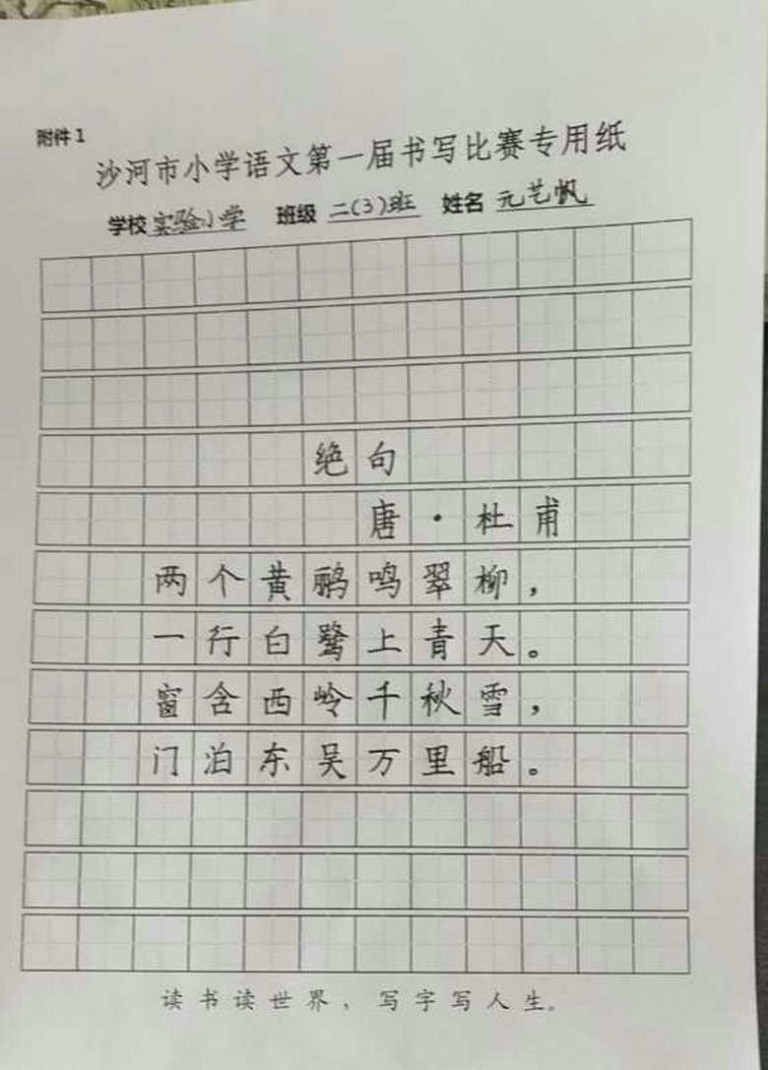 附件1
沙河市小学语文第一届书写比赛专用纸
学校 实验小学 班级 二(3)班 姓名 元艺帆
绝句
唐·杜甫
两个黄鹂鸣翠柳，
一行白鹭上青天。
窗含西岭千秋雪，
门泊东吴万里船。
读书读世界，写字写人生。